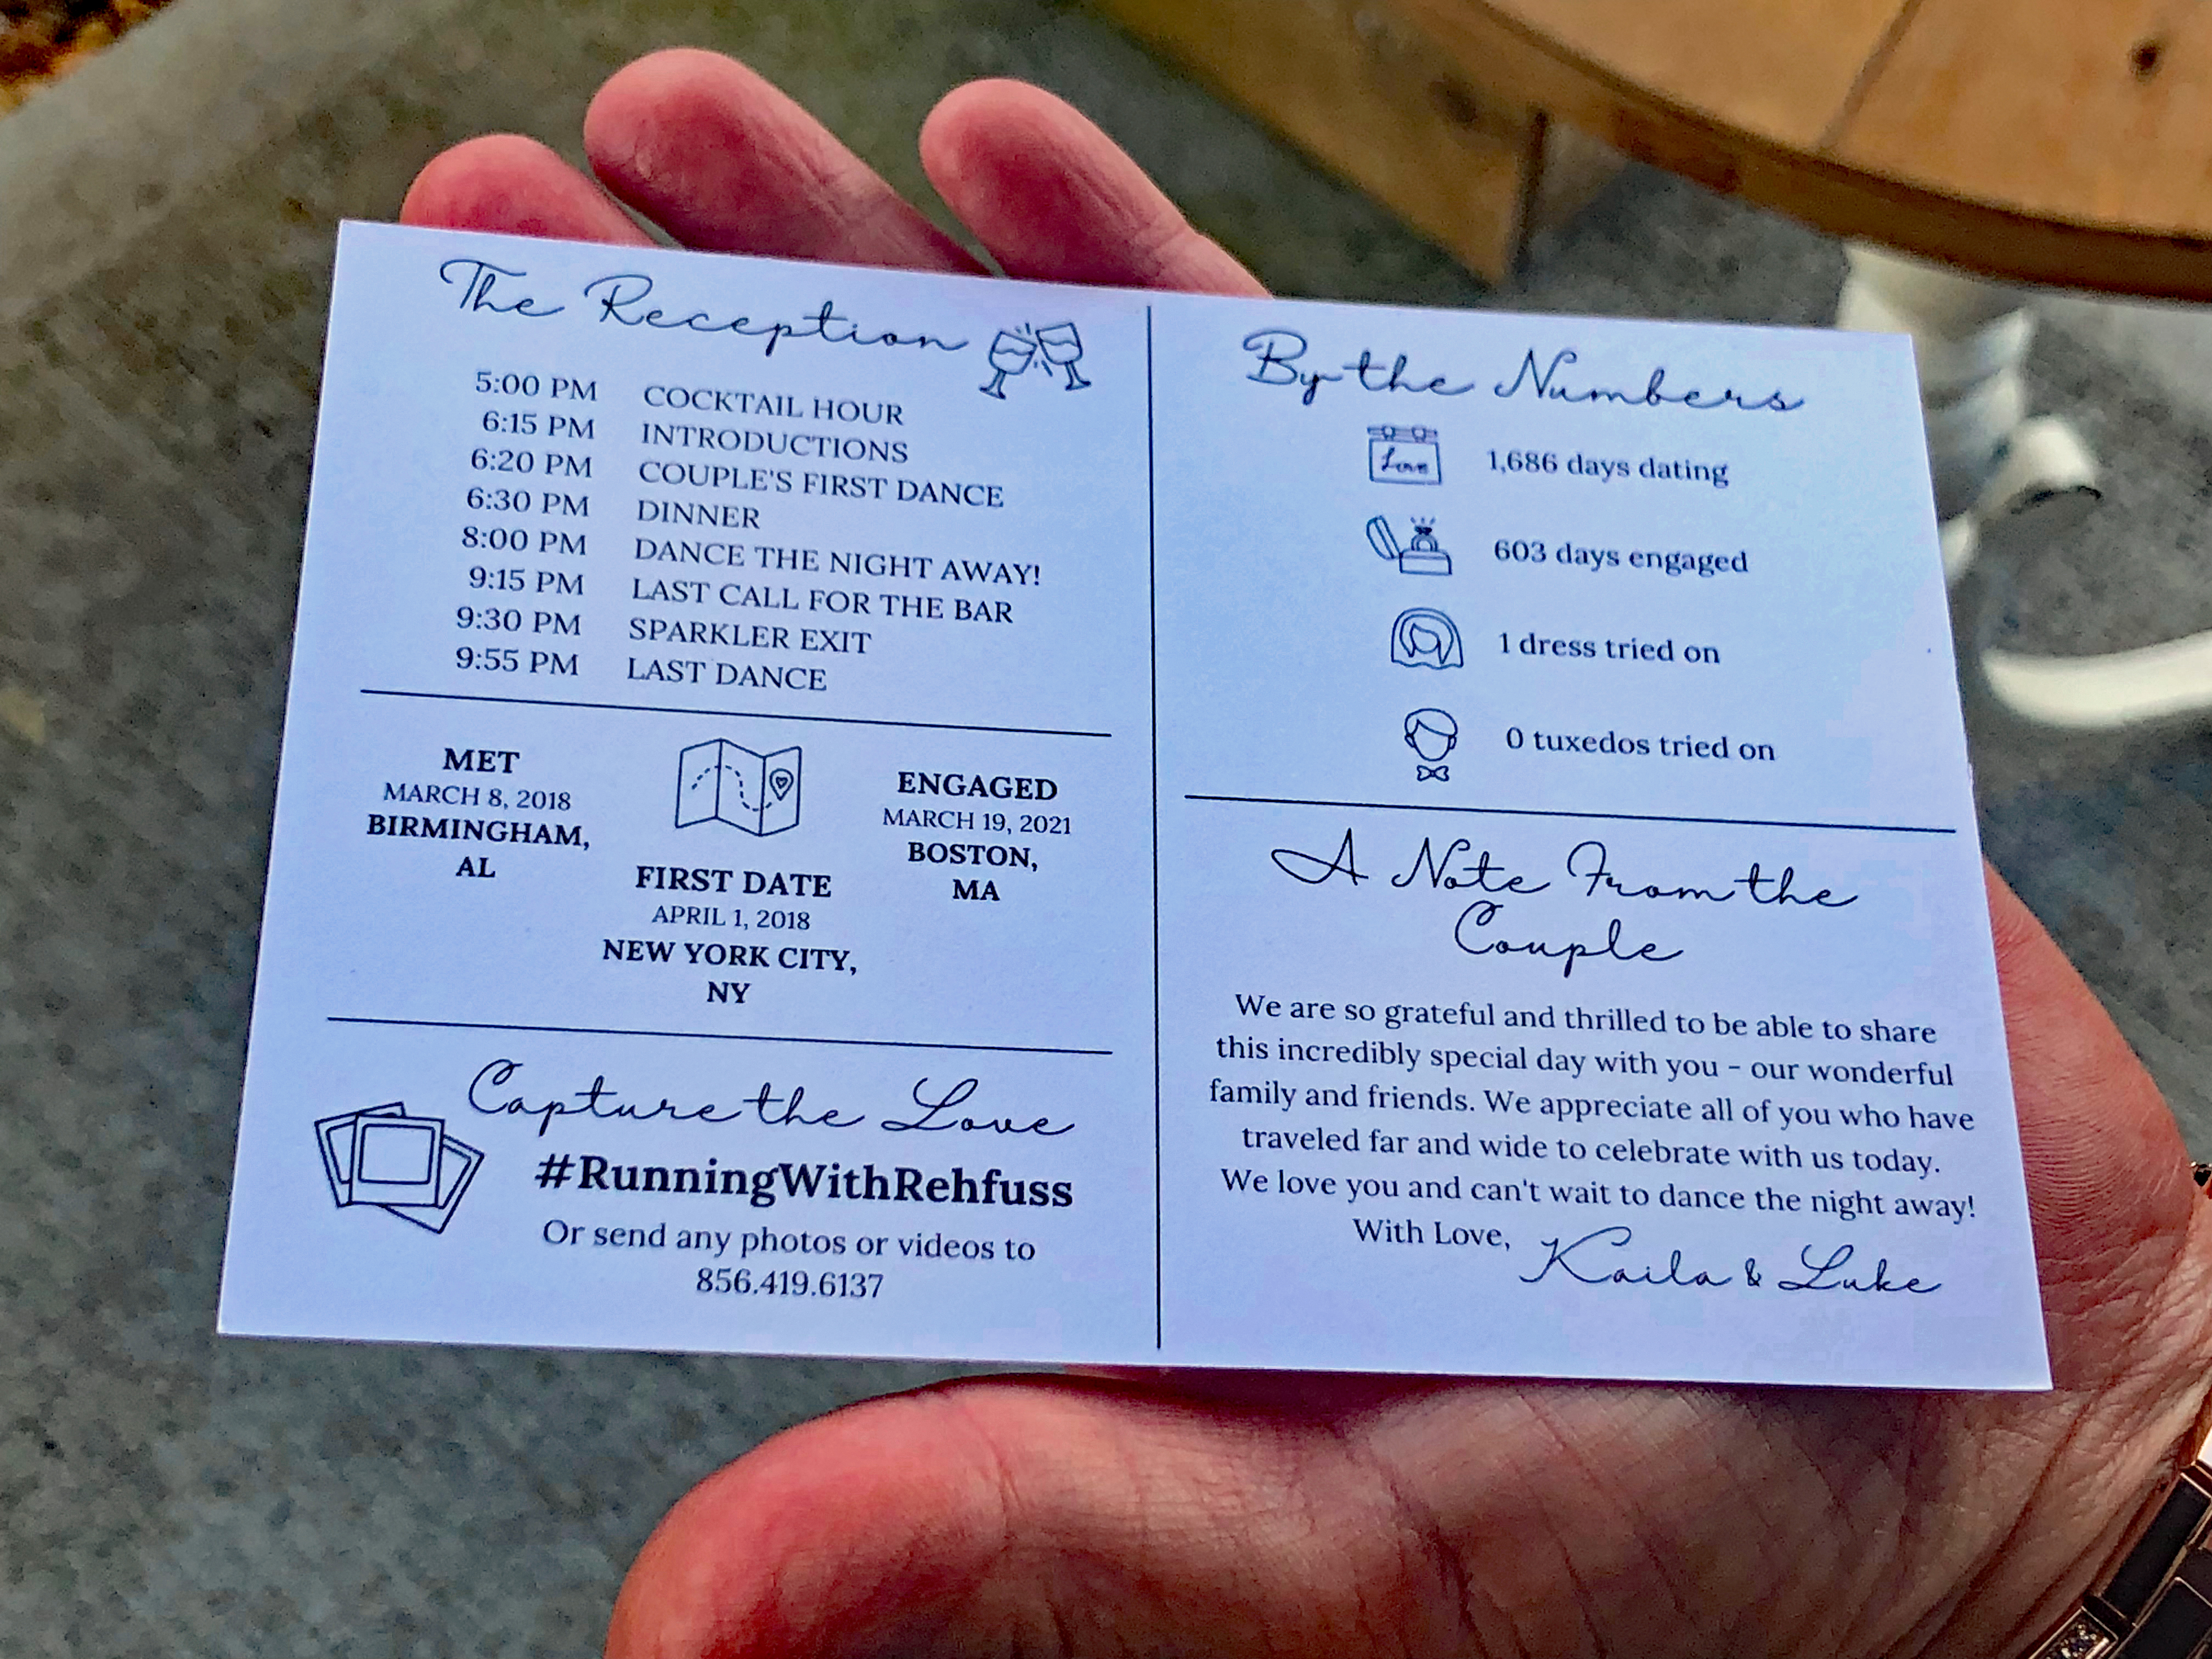 The Reception
5:00 PM COCKTAIL HOUR
6:15 PM INTRODUCTIONS
6:20 PM COUPLE'S FIRST DANCE
6:30 PM DINNER
8:00 PM DANCE THE NIGHT AWAY!
9:15 PM LAST CALL FOR THE BAR
9:30 PM SPARKLER EXIT
9:55 PM LAST DANCE
MET
MARCH 8, 2018
BIRMINGHAM,
AL
FIRST DATE
APRIL 1, 2018
NEW YORK CITY,
NY
ENGAGED
MARCH 19, 2021
BOSTON,
MA
Capture the Love
#RunningWithRehfuss
Or send any photos or videos to
856.419.6137
By the Numbers
Love
1,686 days dating
603 days engaged
1 dress tried on
0 tuxedos tried on
A Note From the
Couple
We are so grateful and thrilled to be able to share
this incredibly special day with you - our wonderful
family and friends. We appreciate all of you who have
traveled far and wide to celebrate with us today.
We love you and can't wait to dance the night away!
With Love, Kaila & Luke